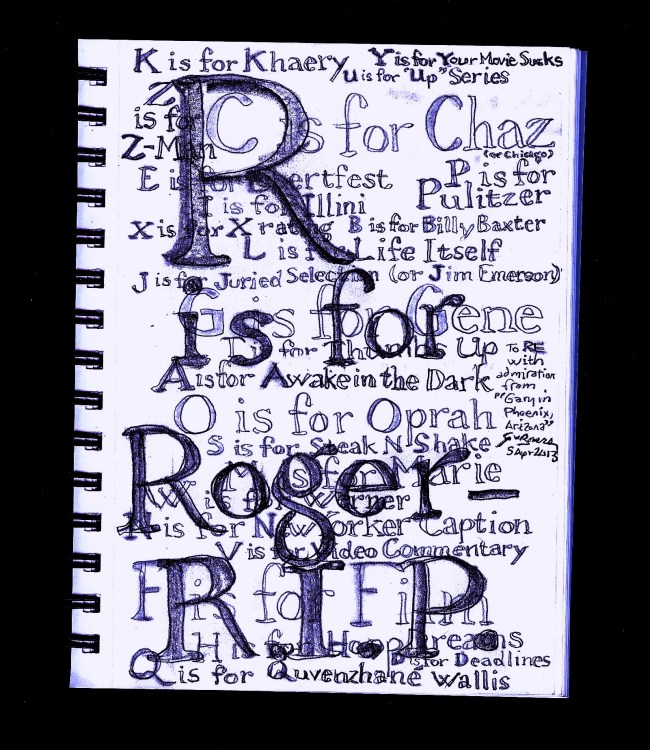 K is for Khaery
Y is for Your Movie Sucks
U is for "Up" Series
Z
is for
Z-Man
C is for Chaz
(or Chicago)
E is for Ebertfest
P is for
Pulitzer
I is for Illini
X is for X rating
B is for Billy Baxter
L is for Life Itself
J is for Juried Selection (or Jim Emerson)
G is for Gene
T is for Thumbs Up
A is for Awake in the Dark
O is for Oprah
S is for Steak N Shake
M is for Marie
W is for Werner
N is for New Yorker Caption
V is for Video Commentary
F is for Film
H is for Hoop Dreams
D is for Deadlines
Q is for Quvenzhane Wallis
R
is for
Roger—
R.I.P.
To RE
with
admiration
from
"Gary in
Phoenix,
Arizona"
5 Apr 2013